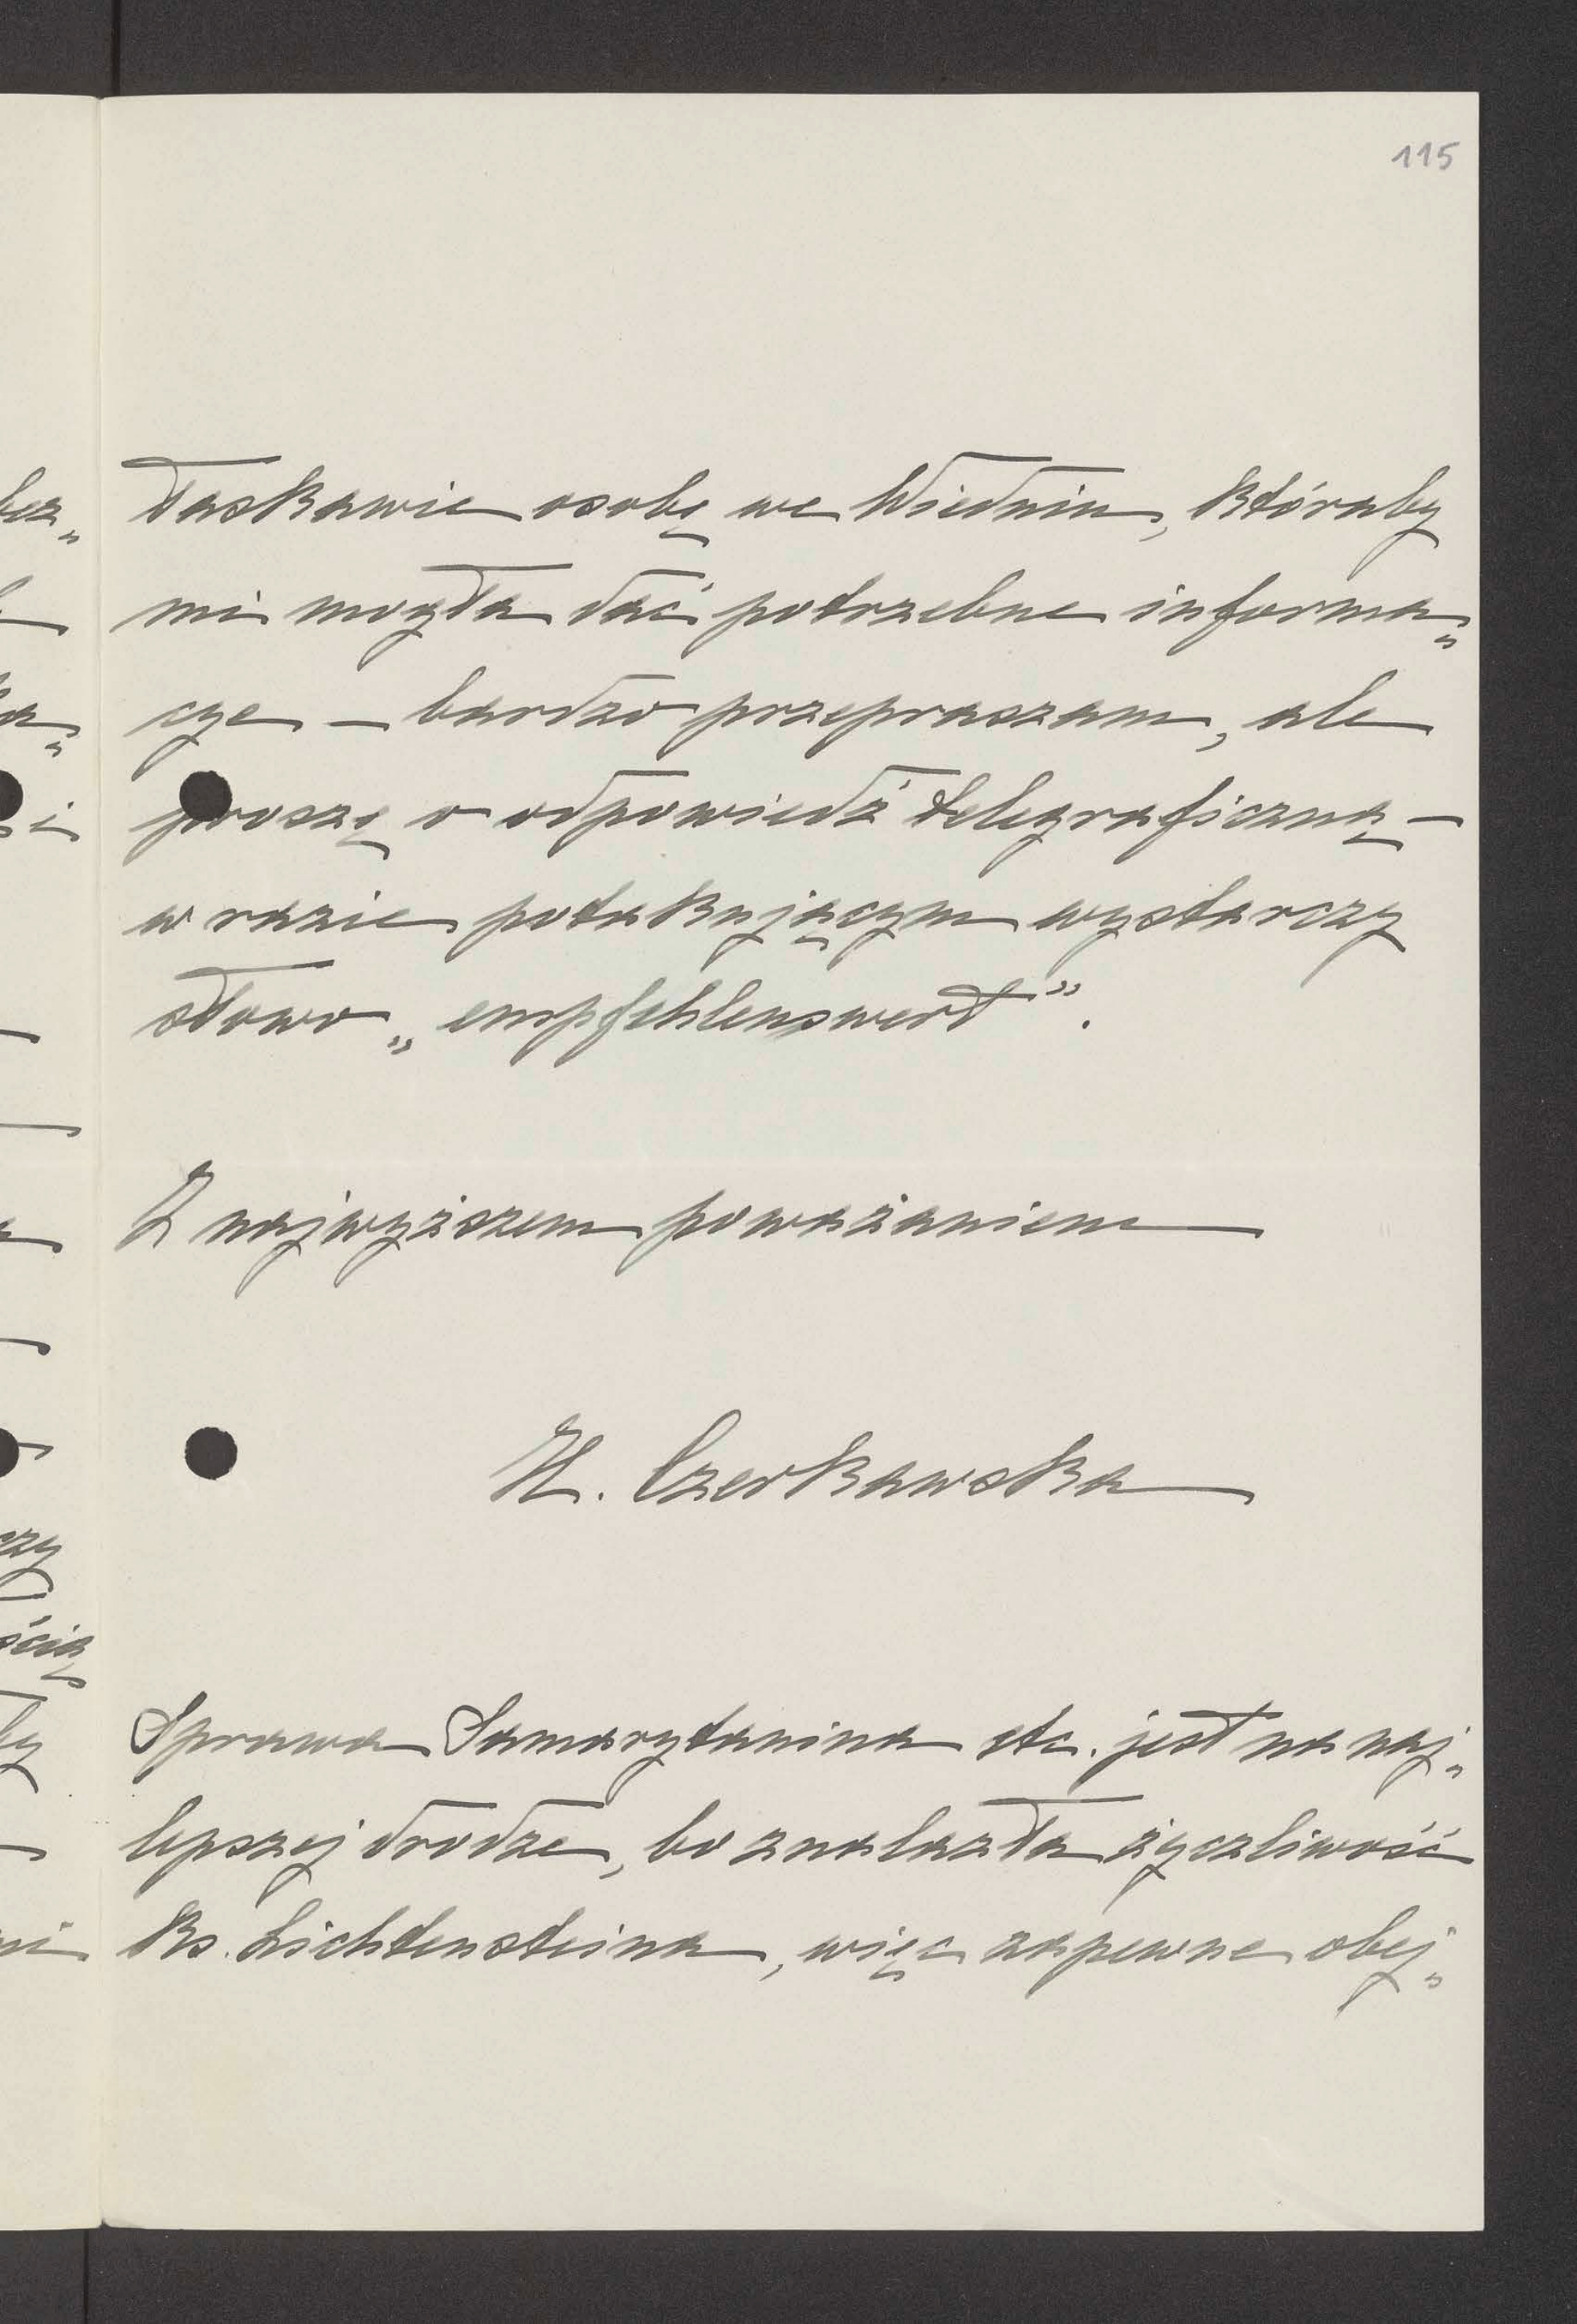 115
łaskawie osobę we Wiedniu, któraby
mi mogła dać potrzebne informa„
cye – bardzo przepraszam, ale
proszę o odpowiedź telegraficzną –
w razie potakującym wystarczy
słowo „empfehlenswert”.
Z najwyższem poważaniem
H. Czerkawska
Sprawa Samarytanina etc. jest na naj„
lepszej drodze, bo znalazła życzliwość
ks. Lichtensteina, więc zapewne obej„